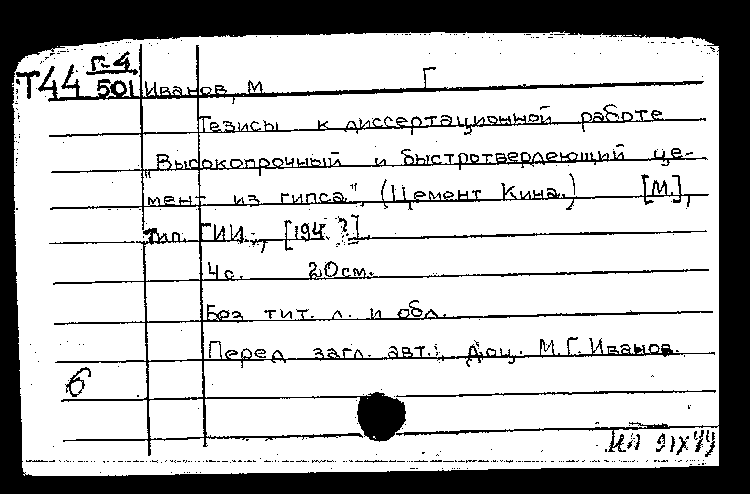 Т44 Г-4
501
Иванов, М Г
Тезисы к диссертационной работе
"Высокопрочный и быстротвердеющий це-
мент из гипса", (Цемент Кина.) [М.],
тип. ГИИ., [194 ?].
4 с. 20см.
Без тит. л. и обл.
Перед загл. авт.: доц. М.Г. Иванов.
б